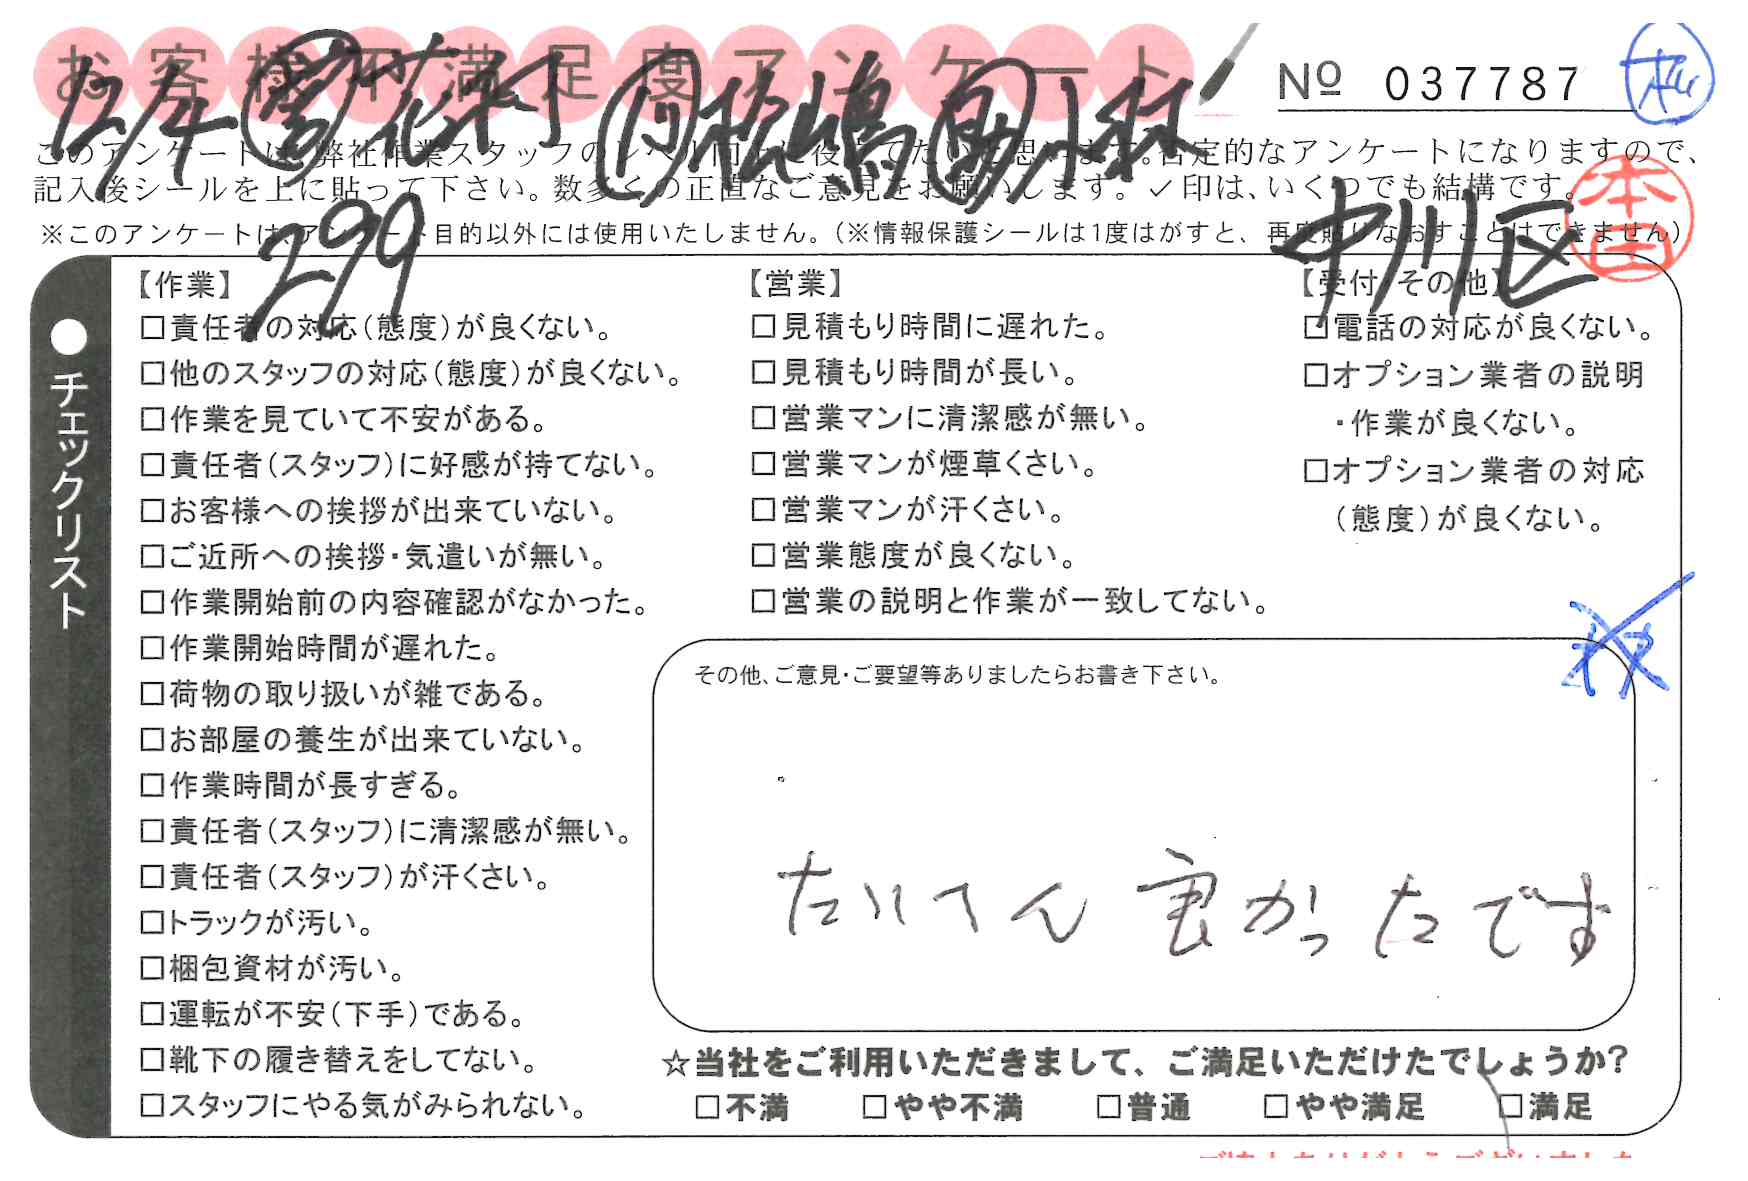 お客様不満足度アンケート
№ 037787
12/4 営 花村 川 松嶋 助 小林
このアンケートは、弊社作業スタッフのレベル向上に役立てたいと思います。否定的なアンケートになりますので、
記入後シールを上に貼って下さい。数多くの正直なご意見をお願いします。✓印は、いくつでも結構です。
※このアンケートは、アンケート目的以外には使用いたしません。(※情報保護シールは1度はがすと、再度貼りなおすことはできません)
299
中川区
本田
チェックリスト
【作業】
□責任者の対応(態度)が良くない。
□他のスタッフの対応(態度)が良くない。
□作業を見ていて不安がある。
□責任者(スタッフ)に好感が持てない。
□お客様への挨拶が出来ていない。
□ご近所への挨拶・気遣いが無い。
□作業開始前の内容確認がなかった。
□作業開始時間が遅れた。
□荷物の取り扱いが雑である。
□お部屋の養生が出来ていない。
□作業時間が長すぎる。
□責任者(スタッフ)に清潔感が無い。
□責任者(スタッフ)が汗くさい。
□トラックが汚い。
□梱包資材が汚い。
□運転が不安(下手)である。
□靴下の履き替えをしてない。
□スタッフにやる気がみられない。
【営業】
□見積もり時間に遅れた。
□見積もり時間が長い。
□営業マンに清潔感が無い。
□営業マンが煙草くさい。
□営業マンが汗くさい。
□営業態度が良くない。
□営業の説明と作業が一致してない。
【受付・その他】
□電話の対応が良くない。
□オプション業者の説明
・作業が良くない。
□オプション業者の対応
(態度)が良くない。
その他、ご意見・ご要望等ありましたらお書き下さい。
たいへん 良かったです
☆当社をご利用いただきまして、ご満足いただけたでしょうか?
□不満 □やや不満 □普通 □やや満足 □満足